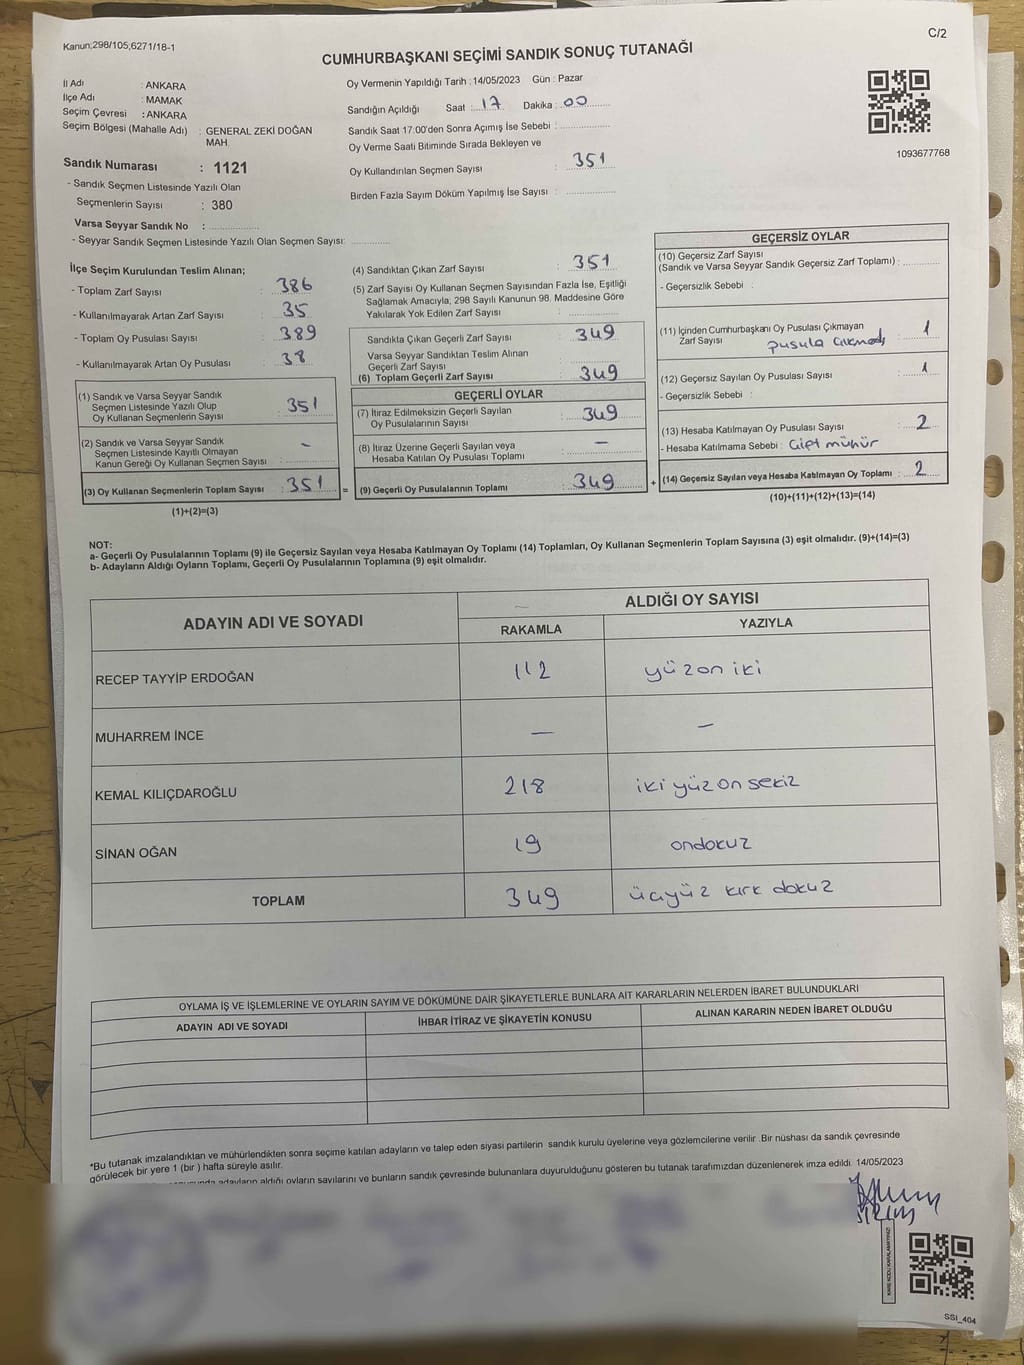 Kanun;298/105;6271/18-1
C/2
CUMHURBAŞKANI SEÇİMİ SANDIK SONUÇ TUTANAĞI
İl Adı : ANKARA
İlçe Adı : MAMAK
Seçim Çevresi : ANKARA
Seçim Bölgesi (Mahalle Adı) : GENERAL ZEKİ DOĞAN
MAH.
Sandık Numarası : 1121
- Sandık Seçmen Listesinde Yazılı Olan
Seçmenlerin Sayısı : 380
Varsa Seyyar Sandık No :
- Seyyar Sandık Seçmen Listesinde Yazılı Olan Seçmen Sayısı:
Oy Vermenin Yapıldığı Tarih : 14/05/2023 Gün : Pazar
Sandığın Açıldığı Saat : 17 Dakika : 00
Sandık Saat 17:00'den Sonra Açımış İse Sebebi :
Oy Verme Saati Bitiminde Sırada Bekleyen ve
Oy Kullandırılan Seçmen Sayısı : 351
Birden Fazla Sayım Döküm Yapılmış İse Sayısı :
1093677768
İlçe Seçim Kurulundan Teslim Alınan;
- Toplam Zarf Sayısı : 386
- Kullanılmayarak Artan Zarf Sayısı : 35
- Toplam Oy Pusulası Sayısı : 389
- Kullanılmayarak Artan Oy Pusulası : 38
(1) Sandık ve Varsa Seyyar Sandık
Seçmen Listesinde Yazılı Olup
Oy Kullanan Seçmenlerin Sayısı : 351
(2) Sandık ve Varsa Seyyar Sandık
Seçmen Listesinde Kayıtlı Olmayan
Kanun Gereği Oy Kullanan Seçmen Sayısı : -
(3) Oy Kullanan Seçmenlerin Toplam Sayısı : 351 =
(1)+(2)=(3)
(4) Sandıktan Çıkan Zarf Sayısı : 351
(5) Zarf Sayısı Oy Kullanan Seçmen Sayısından Fazla İse, Eşitliği
Sağlamak Amacıyla; 298 Sayılı Kanunun 98. Maddesine Göre
Yakılarak Yok Edilen Zarf Sayısı :
Sandıkta Çıkan Geçerli Zarf Sayısı : 349
Varsa Seyyar Sandıktan Teslim Alınan
Geçerli Zarf Sayısı :
(6) Toplam Geçerli Zarf Sayısı : 349
GEÇERLİ OYLAR
(7) İtiraz Edilmeksizin Geçerli Sayılan
Oy Pusulalarının Sayısı : 349
(8) İtiraz Üzerine Geçerli Sayılan veya
Hesaba Katılan Oy Pusulası Toplamı : —
(9) Geçerli Oy Pusulalarının Toplamı : 349 +
GEÇERSİZ OYLAR
(10) Geçersiz Zarf Sayısı
(Sandık ve Varsa Seyyar Sandık Geçersiz Zarf Toplamı) :
- Geçersizlik Sebebi :
(11) İçinden Cumhurbaşkanı Oy Pusulası Çıkmayan
Zarf Sayısı : 1
pusula çıkmadı
(12) Geçersiz Sayılan Oy Pusulası Sayısı : 1
- Geçersizlik Sebebi :
(13) Hesaba Katılmayan Oy Pusulası Sayısı : 2
- Hesaba Katılmama Sebebi : Çift mühür
(14) Geçersiz Sayılan veya Hesaba Katılmayan Oy Toplamı : 2
(10)+(11)+(12)+(13)=(14)
NOT:
a- Geçerli Oy Pusulalarının Toplamı (9) ile Geçersiz Sayılan veya Hesaba Katılmayan Oy Toplamı (14) Toplamları, Oy Kullanan Seçmenlerin Toplam Sayısına (3) eşit olmalıdır. (9)+(14)=(3)
b- Adayların Aldığı Oyların Toplamı, Geçerli Oy Pusulalarının Toplamına (9) eşit olmalıdır.
ADAYIN ADI VE SOYADI
ALDIĞI OY SAYISI
RAKAMLA YAZIYLA
RECEP TAYYİP ERDOĞAN 112 yüz on iki
MUHARREM İNCE — —
KEMAL KILIÇDAROĞLU 218 iki yüz on sekiz
SİNAN OĞAN 19 ondokuz
TOPLAM 349 üçyüz kırk dokuz
OYLAMA İŞ VE İŞLEMLERİNE VE OYLARIN SAYIM VE DÖKÜMÜNE DAİR ŞİKAYETLERLE BUNLARA AİT KARARLARIN NELERDEN İBARET BULUNDUKLARI
ADAYIN ADI VE SOYADI İHBAR İTİRAZ VE ŞİKAYETİN KONUSU ALINAN KARARIN NEDEN İBARET OLDUĞU
*Bu tutanak imzalandıktan ve mühürlendikten sonra seçime katılan adayların ve talep eden siyasi partilerin sandık kurulu üyelerine veya gözlemcilerine verilir .Bir nüshası da sandık çevresinde
görülecek bir yere 1 (bir ) hafta süreyle asılır.
adayların aldığı oyların sayılarını ve bunların sandık çevresinde bulunanlara duyurulduğunu gösteren bu tutanak tarafımızdan düzenlenerek imza edildi. 14/05/2023
KARE KODU KARALAMAYINIZ!
SSI_404